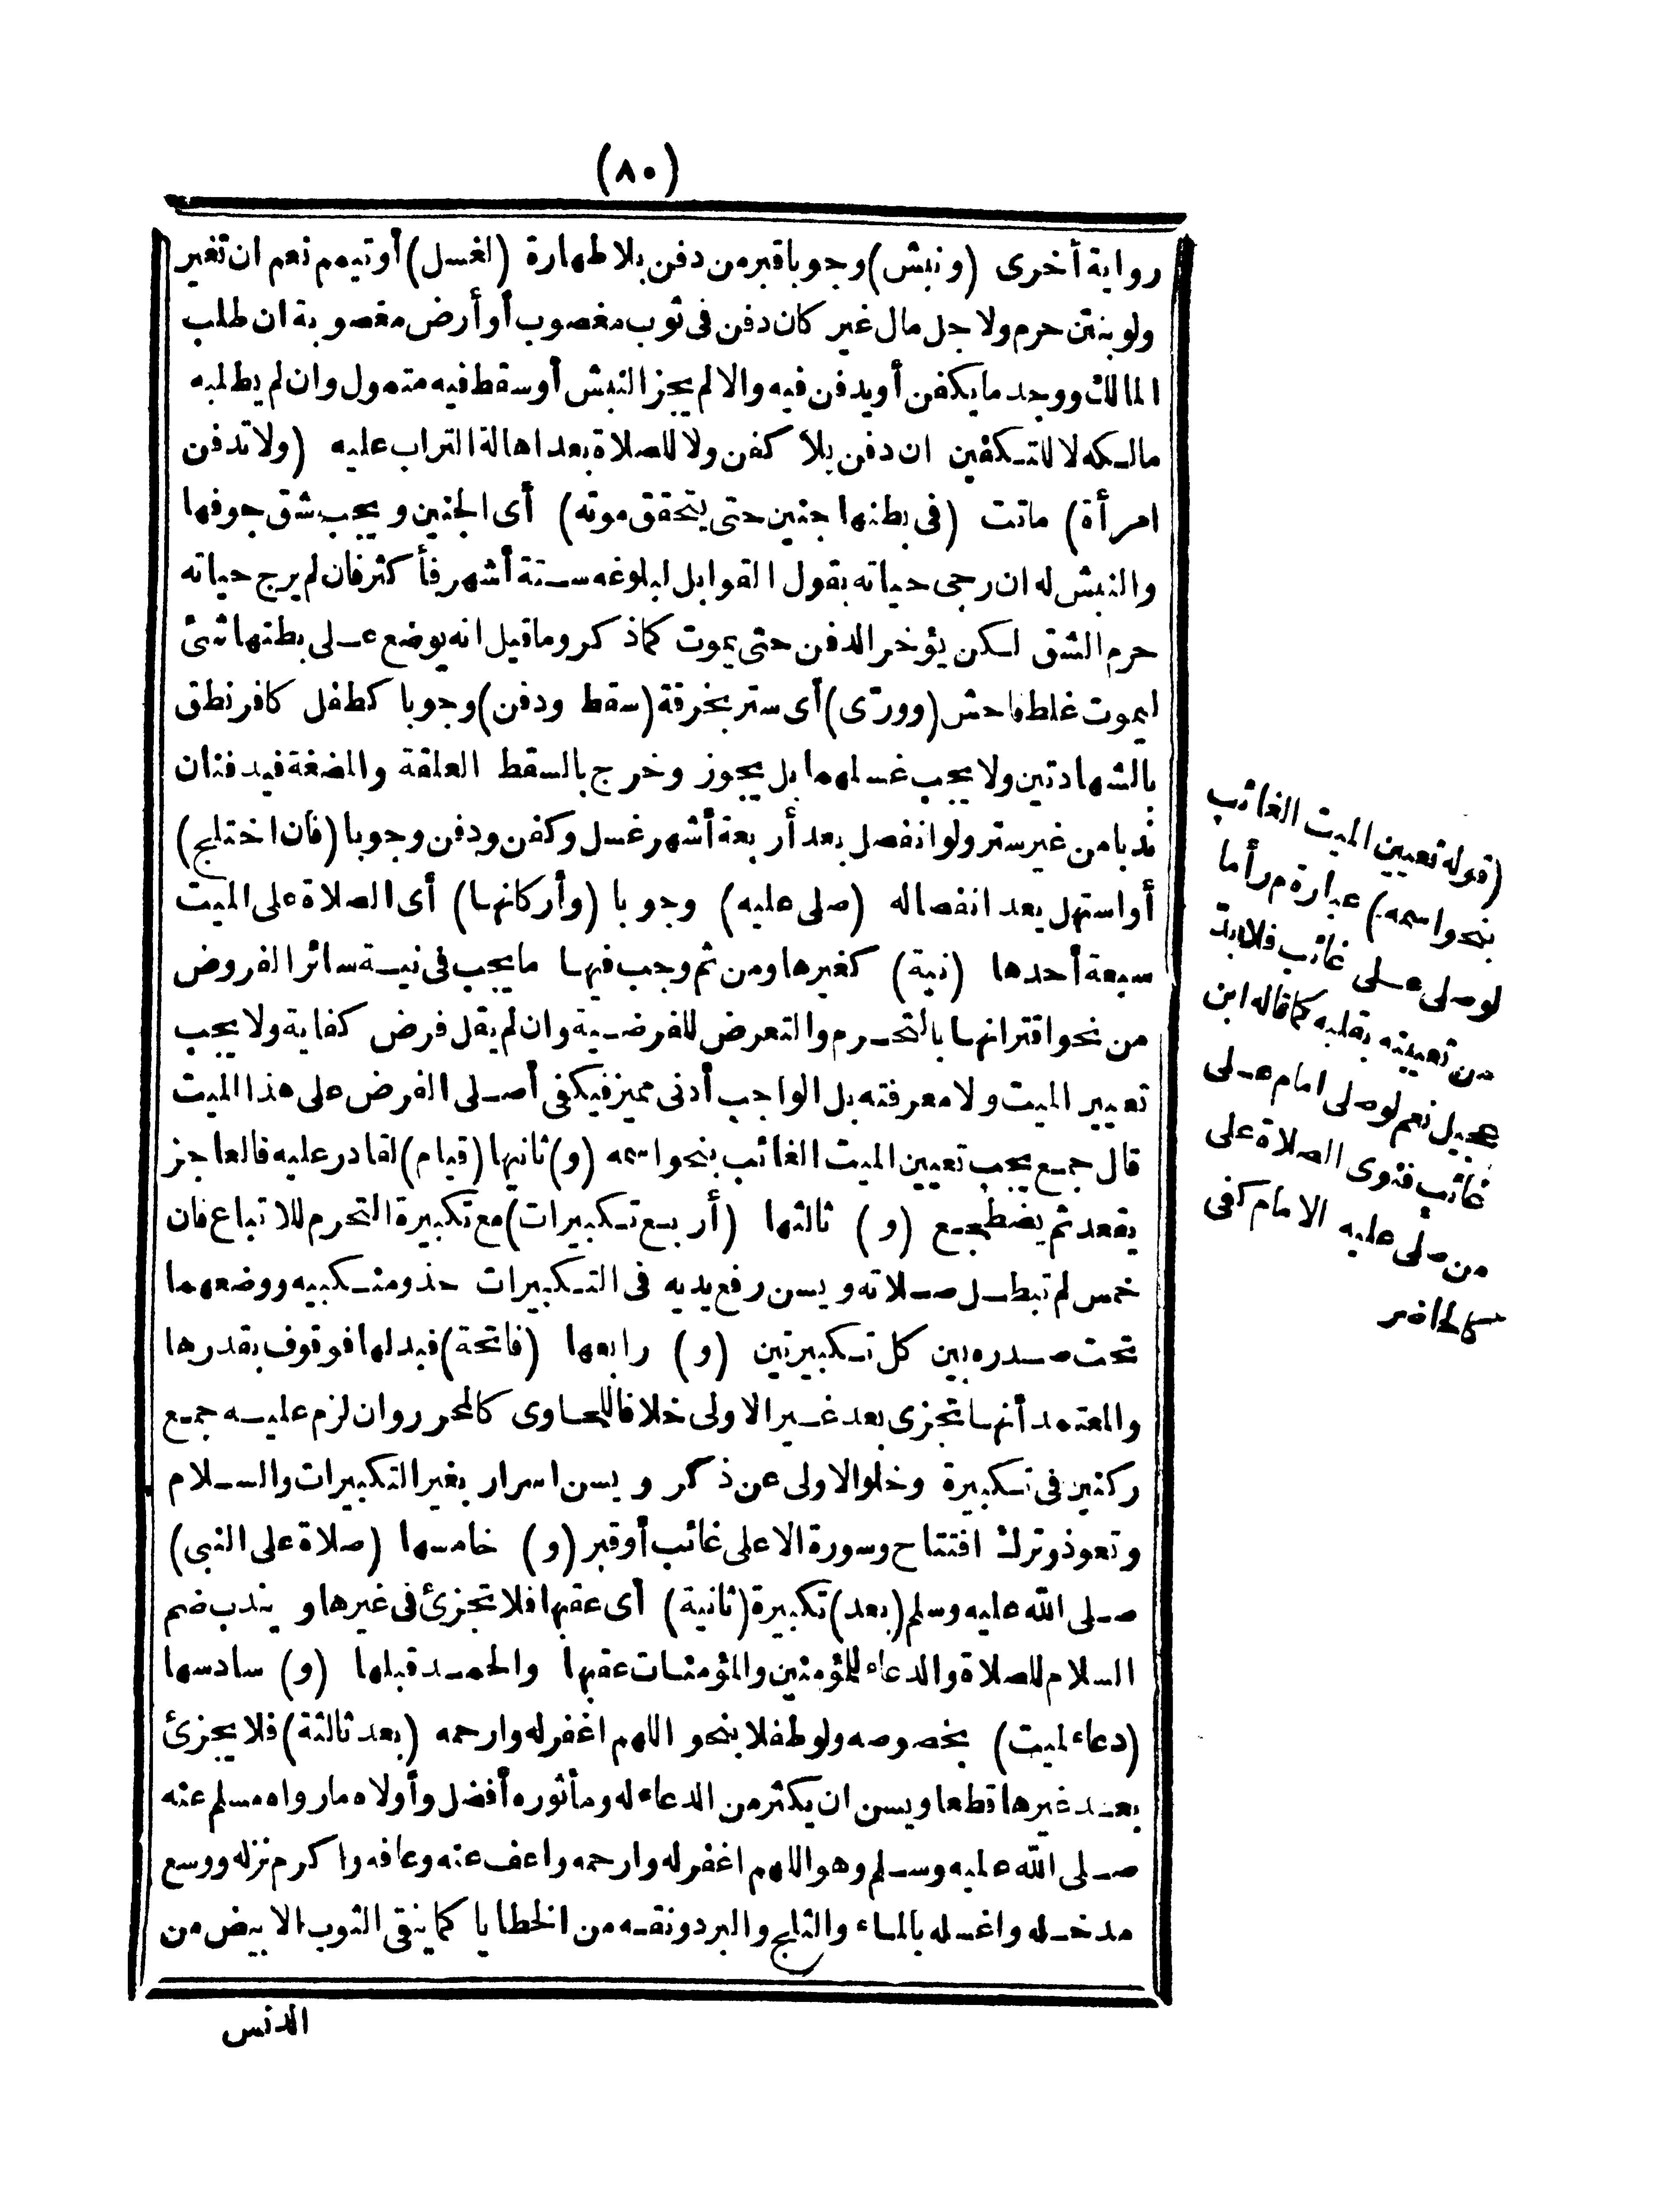 (٨٠)
رواية أخرى (ونبش) وجوبا قبر من دفن بلا طهارة (لغسل) أو تيمم نعم ان تغير
ولو بنتن حرم ولاجل مال غير كان دفن فى ثوب مغصوب أو أرض مغصوبة ان طلب
المالك ووجد ما يكفن أو يدفن فيه والا لم يجز النبش أو سقط فيه متمول وان لم يطلبه
مالكه لا للتكفين ان دفن بلا كفن ولا للصلاة بعد اهالة التراب عليه (ولا تدفن
امرأة) ماتت (فى بطنها جنين حتى يتحقق موته) أى الجنين ويجب شق جوفها
والنبش له ان رجى حياته بقول القوابل لبلوغه ستة أشهر فأكثر فان لم يرج حياته
حرم الشق لكن يؤخر الدفن حتى يموت كما ذكر وما قيل انه يوضع على بطنها شئ
ليموت غلط فاحش (وورّى) أى ستر بخرقة (سقط ودفن) وجوبا كطفل كافر نطق
بالشهادتين ولا يجب غسلهما بل يجوز وخرج بالسقط العلقة والمضغة فيدفنان
ندبا من غير ستر ولو انفصل بعد أربعة أشهر غسل وكفن ودفن وجوبا (فان اختلج)
أو استهل بعد انفصاله (صلى عليه) وجوبا (وأركانها) أى الصلاة على الميت
سبعة أحدها (نية) كغيرها ومن ثم وجب فيها ما يجب فى نية سائر الفروض
من نحو اقترانها بالتحرم والتعرض للفرضية وان لم يقل فرض كفاية ولا يجب
تعيير الميت ولا معرفته بل الواجب أدنى مميز فيكفى أصلى الفرض على هذا الميت
قال جمع يجب تعيين الميت الغائب بنحو اسمه (و) ثانيها (قيام) لقادر عليه فالعاجز
يقعد ثم يضطجع (و) ثالثها (أربع تكبيرات) مع تكبيرة التحرم للاتباع فان
خمس لم تبطل صلاته ويسن رفع يديه فى التكبيرات حذو منكبيه ووضعهما
تحت صدره بين كل تكبيرتين (و) رابعها (فاتحة) فبدلها فوقوف بقدرها
والمعتمد أنها تجزى بعد غير الاولى خلافا للحاوى كالمحرر وان لزم عليه جمع
ركنين فى تكبيرة وخلو الاولى عن ذكر ويسن اسرار بغير التكبيرات والسلام
وتعوذ وترك افتتاح وسورة الا على غائب أو قبر (و) خامسها (صلاة على النبى)
صلى الله عليه وسلم (بعد) تكبيرة (ثانية) أى عقبها فلا تجزئ فى غيرها ويندب ضم
السلام للصلاة والدعاء للمؤمنين والمؤمنات عقبها والحمد قبلها (و) سادسها
(دعاء لميت) بخصوصه ولو طفلا بنحو اللهم اغفر له وارحمه (بعد ثالثة) فلا يجزئ
بعد غيرها قطعا ويسن ان يكثر من الدعاء له ومأثوره أفضل وأولاه ما رواه مسلم عنه
صلى الله عليه وسلم وهو اللهم اغفر له وارحمه واعف عنه وعافه واكرم نزله ووسع
مدخله واغسله بالماء والثلج والبرد ونقه من الخطايا كما ينقى الثوب الابيض من
الدنس
(قوله تعيين الميت الغائب
بنحو اسمه) عبارة م ر أما
لو صلى على غائب فلابد
من تعيينه بقلبه كما قاله ابن
عجيل نعم لو صلى امام على
غائب فنوى الصلاة على
من صلى عليه الامام كفى
كالحاضر